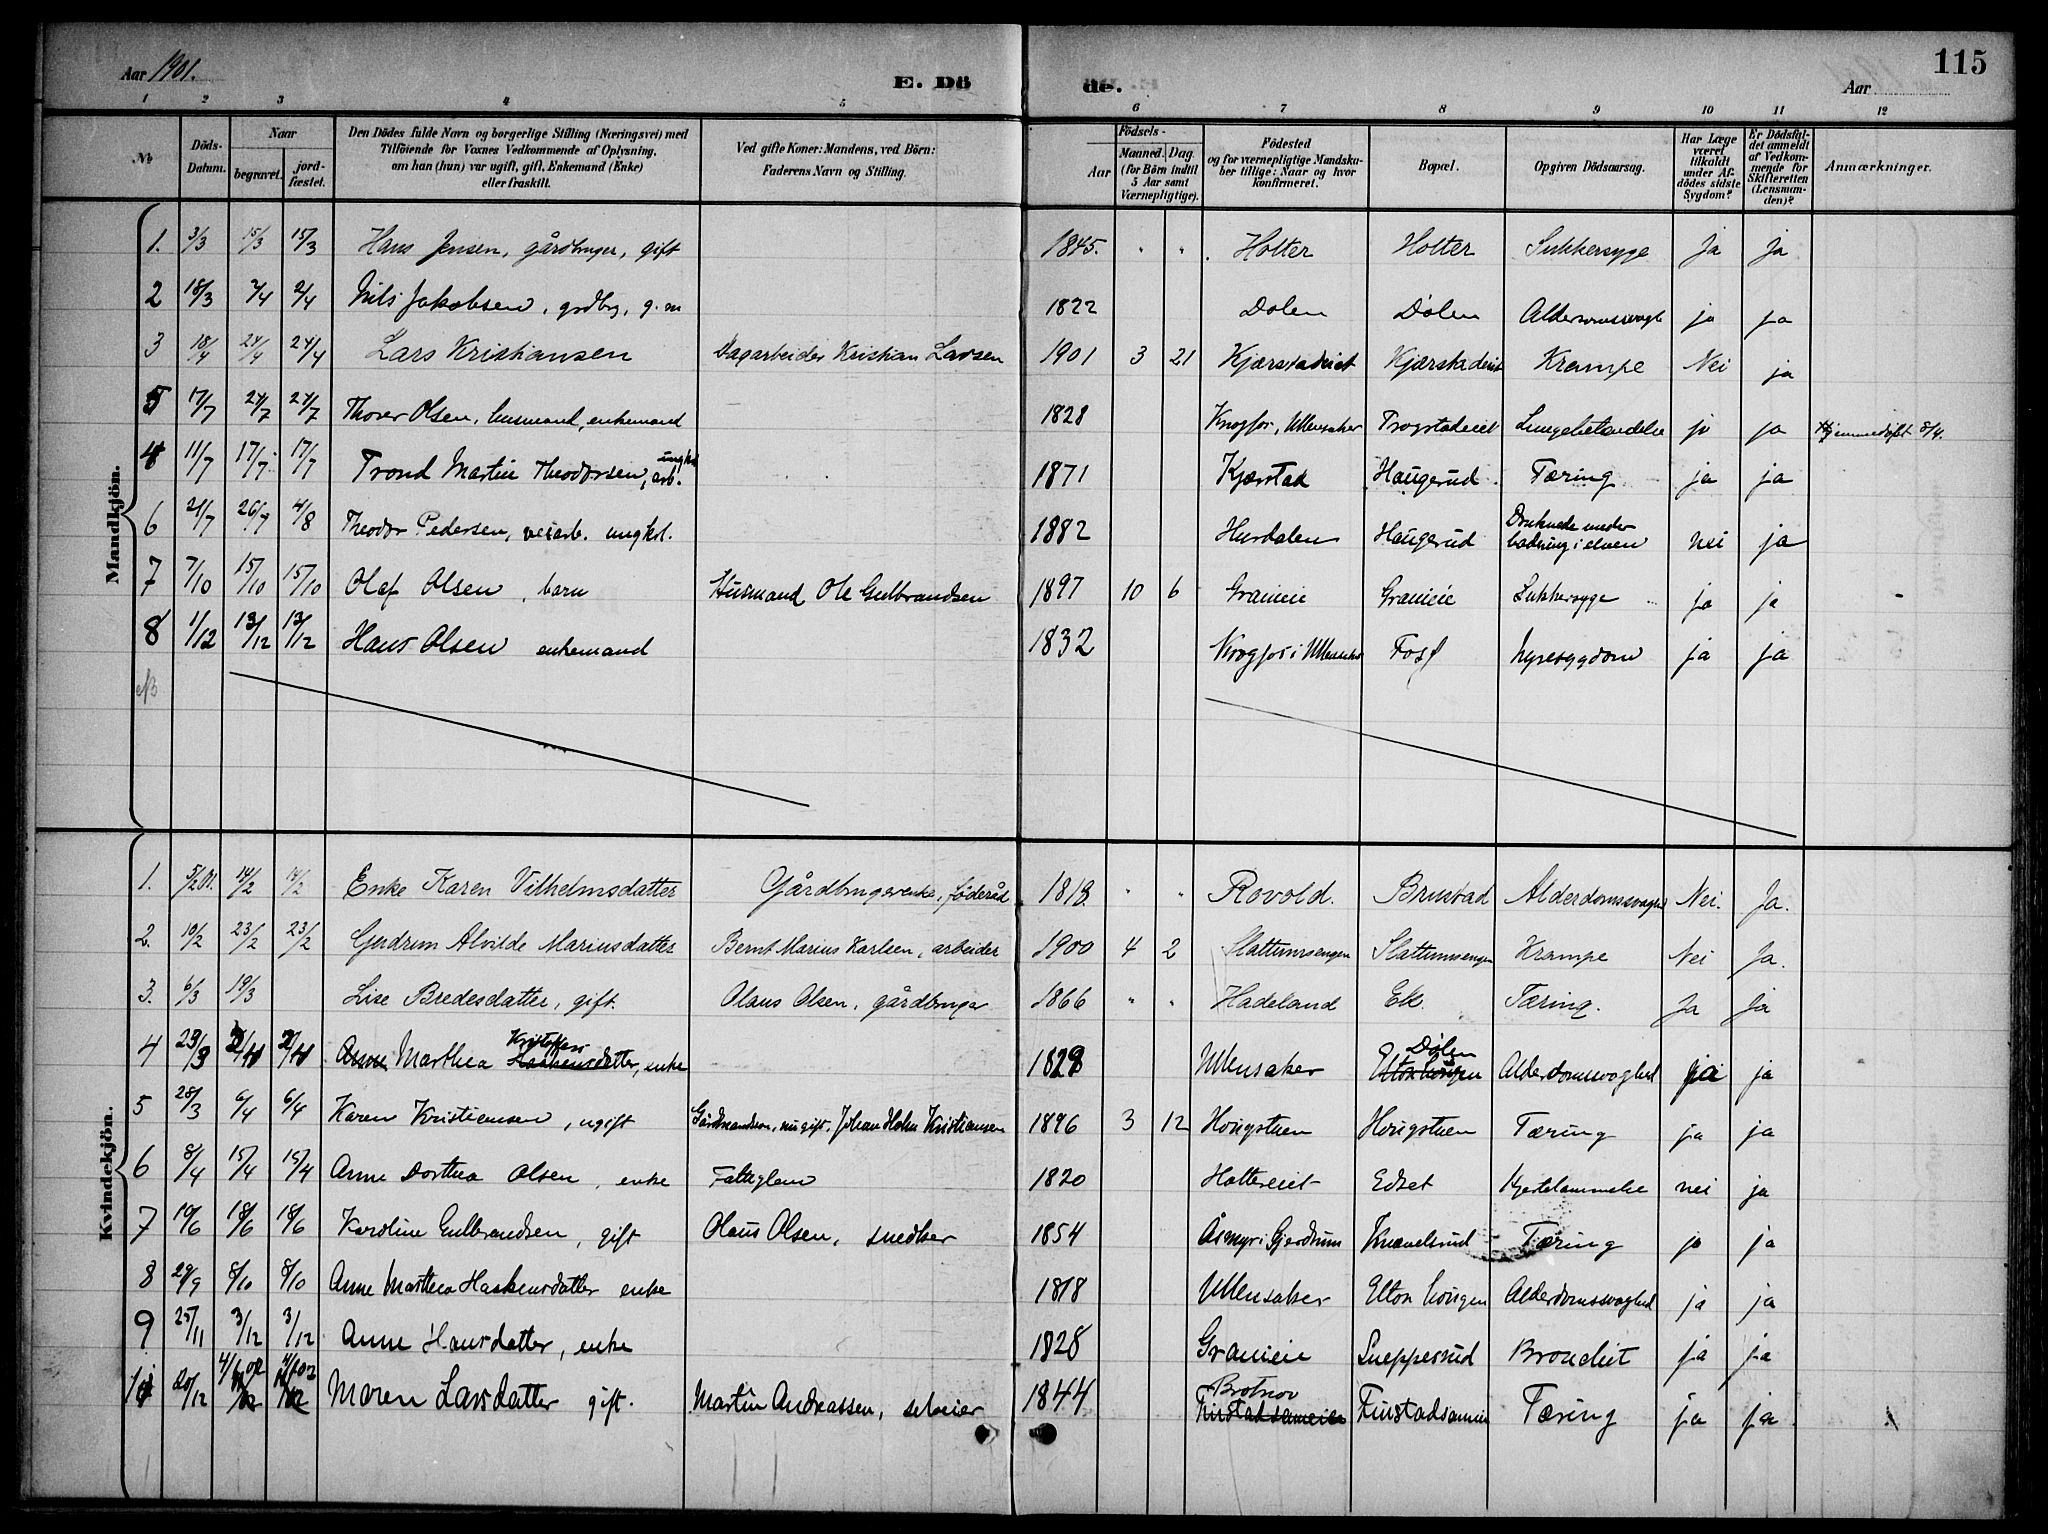 Aar 1901.
E. Dö
de.
Aar
115
1 2 3 4 5 6 7 8 9 10 11 12
No
Döds-Datum.
Naar
begravet.
jord-fæstet.
Den Dödes fulde Navn og borgerlige Stilling (Næringsvei) med
Tilföiende for Voxnes Vedkommende af Oplysning,
om han (hun) var ugift, gift, Enkemand (Enke)
eller fraskilt.
Ved gifte Koner: Mandens, ved Börn:
Faderens Navn og Stilling.
Födsels-
Aar
Maaned. Dag.
(for Börn indtil
5 Aar samt
Værnepligtige).
Födested
og for værnepligtige Mandska-
ber tillige: Naar og hvor
konfirmeret.
Bopæl.
Opgiven Dödsaarsag.
Har Læge
været
tilkaldt
under Af-
dödes sidste
Sygdom?
Er Dödsfal-
det anmeldt
af Vedkom-
mende for
Skifteretten
(Lensman-
den)?
Anmærkninger.
Mandkjön.
1. 3/3 15/3 15/3 Hans Jensen, gårdbruger, gift 1845. " " Holter Holter Sukkersyge Ja Ja
2 18/3 2/4 Nils Jakobsen, grdbr., g.m 1822 Dølen Dølen ja ja
3 18/4 24/4 24/4 Lars Kristiansen Dagarbeider Kristian Larsen 1901 3 21 Kjærstadeiet Kjærstadeiet Krampe Nei ja
5 17/7 24/7 24/7 Thorer Olsen, husmand, enkemand 1828 Krogfos, Ullensaker Trogstadeiet Lungebetændelse ja ja Hjemmedøbt 8/4.
4 11/7 17/7 17/7 Trond Martin Theodorsen, arb. ungkl 1871 Kjærstad Haugerud Tæring ja ja
6 21/7 26/7 4/8 Theodor Pedersen, veiarb. ungkl. 1882 Hurdalen Haugerud Druknede under badning i elven nei ja
7 7/10 15/10 15/10 Olaf Olsen, barn Husmand Ole Gulbrandsen 1897 10 6 Graneie Graneie Sukkersyge ja ja
8 1/12 13/12 13/12 Hans Olsen enkemand 1832 Krogfos i Ullensaker Foss Nyresygdom ja ja
Kvindekjön.
1. 5/2 01. 14/2 14/2 Enke Karen Vilhelmsdatter Gårdbrugerenke, føderåd 1818 " " Rovold. Brustad Alderdomssvaghed Nei. Ja.
2. 10/2 23/2 23/2 Gudrun Alvilde Mariusdatter Bernt Marius Karlsen, arbeider 1900 4 2 Slattumsengen Slattumsengen Krampe Nei Ja.
3. 6/3 19/3 Lise Bredesdatter, gift. Olaus Olsen, gårdbruger 1866 " " Hadeland Ek. Tæring. Ja Ja
4 23/3 2/4 2/4 Anne Marthea Kristoffers Haakensdatter, enke 1829 Ullensaker Dølen Elton Løugen Alderdomssvaghed ja ja
5 28/3 6/4 6/4 Karen Kristiansen, ugift Gårdmandssøn, nu gift, Johan Holm Kristiansen 1896 3 12 Hougstuen Hougstuen Tæring ja ja
6 8/4 15/4 15/4 Anne Dorthea Olsen, enke Fattiglem 1820 Holtereiet Edset Hjertelammelse nei ja
7 10/6 18/6 18/6 Karoline Gulbrandsen, gift Olaus Olsen, snedker 1854 Åsmyr i Gjerdrum Knævelsrud Tæring ja ja
8 29/9 8/10 8/10 Anne Marthea Haakensdatter enke 1818 Ullensaker Elton Løugen Alderdomssvaghed ja ja
9 25/11 3/12 3/12 Anne Hansdatter, enke 1828 Graneie Sneppesrud Bronchit ja ja
10 20/12 4/1 02 4/1 02 Maren Larsdatter gift. Martin Andreassen, selveier 1844 Brotnov Finstadsameiet Finstadsameiet Tæring ja ja